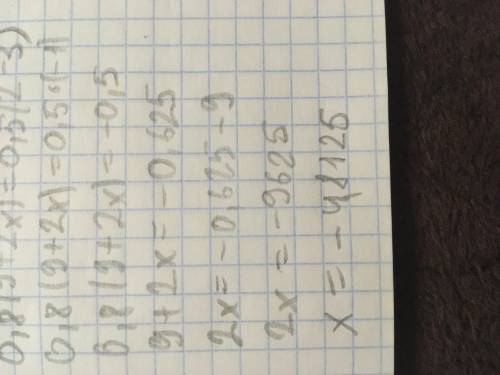 0,8(9+2x)=0,5(2-3)
0,8(9+2x)=0,5·(-1)
0,8(9+2x)=-0,5
9+2x=-0,625
2x=-0,625-9
2x=-9625
x=-4,8125